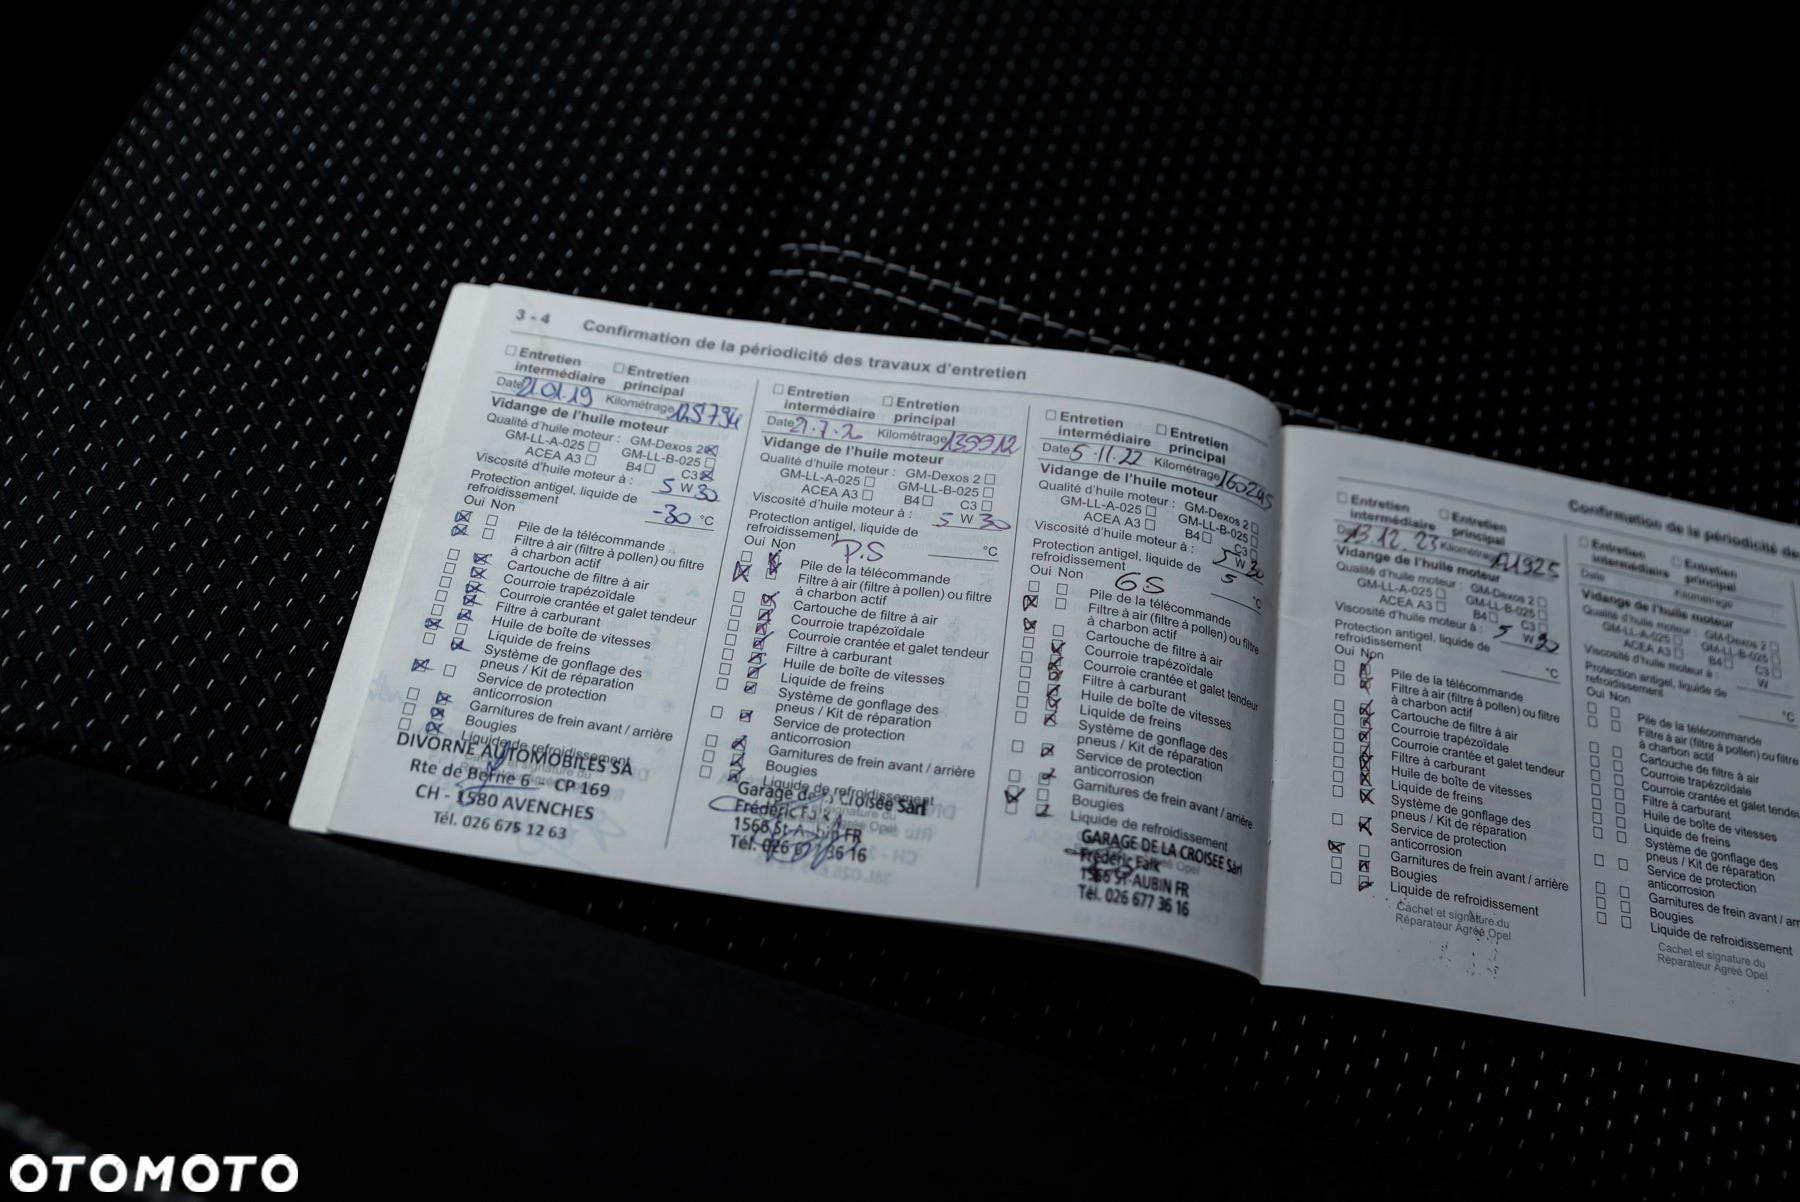 3 - 4 Confirmation de la périodicité des travaux d'entretien
Entretien intermédiaire
Entretien principal
Date 21.01.19 Kilométrage 125794
Vidange de l'huile moteur
Qualité d'huile moteur : GM-Dexos 2
GM-LL-A-025 GM-LL-B-025
ACEA A3 B4 C3
Viscosité d'huile moteur à : 5 W 30
Protection antigel, liquide de
refroidissement -30 °C
Oui Non
Pile de la télécommande
Filtre à air (filtre à pollen) ou filtre
à charbon actif
Cartouche de filtre à air
Courroie trapézoïdale
Courroie crantée et galet tendeur
Filtre à carburant
Huile de boîte de vitesses
Liquide de freins
Système de gonflage des
pneus / Kit de réparation
Service de protection
anticorrosion
Garnitures de frein avant / arrière
Bougies
Liquide de refroidissement
DIVORNE AUTOMOBILES SA
Rte de Berne 6 - CP 169
CH - 1580 AVENCHES
Tél. 026 675 12 63
Entretien intermédiaire
Entretien principal
Date 21.7.2 Kilométrage 135912
Vidange de l'huile moteur
Qualité d'huile moteur : GM-Dexos 2
GM-LL-A-025 GM-LL-B-025
ACEA A3 B4 C3
Viscosité d'huile moteur à : 5 W 30
Protection antigel, liquide de
refroidissement °C
P.S
Oui Non
Pile de la télécommande
Filtre à air (filtre à pollen) ou filtre
à charbon actif
Cartouche de filtre à air
Courroie trapézoïdale
Courroie crantée et galet tendeur
Filtre à carburant
Huile de boîte de vitesses
Liquide de freins
Système de gonflage des
pneus / Kit de réparation
Service de protection
anticorrosion
Garnitures de frein avant / arrière
Bougies
Liquide de refroidissement
Garage de la Croisée Sàrl
Frédéric Falk
1566 St-Aubin FR
Tél. 026 677 36 16
Entretien intermédiaire
Entretien principal
Date 5.11.22 Kilométrage 160245
Vidange de l'huile moteur
Qualité d'huile moteur : GM-Dexos 2
GM-LL-A-025 GM-LL-B-025
ACEA A3 B4 C3
Viscosité d'huile moteur à : 5 W 30
Protection antigel, liquide de
refroidissement 5 °C
GS
Oui Non
Pile de la télécommande
Filtre à air (filtre à pollen) ou filtre
à charbon actif
Cartouche de filtre à air
Courroie trapézoïdale
Courroie crantée et galet tendeur
Filtre à carburant
Huile de boîte de vitesses
Liquide de freins
Système de gonflage des
pneus / Kit de réparation
Service de protection
anticorrosion
Garnitures de frein avant / arrière
Bougies
Liquide de refroidissement
GARAGE DE LA CROISEE Sàrl
Frédéric Falk
1566 ST-AUBIN FR
Tél. 026 677 36 16
Confirmation de la périodicité des
Entretien intermédiaire
Entretien principal
Date 13.12.23 Kilométrage
Vidange de l'huile moteur
Qualité d'huile moteur : GM-Dexos 2
GM-LL-A-025 GM-LL-B-025
ACEA A3 B4 C3
Viscosité d'huile moteur à : 5 W 30
Protection antigel, liquide de
refroidissement °C
Oui Non
Pile de la télécommande
Filtre à air (filtre à pollen) ou filtre
à charbon actif
Cartouche de filtre à air
Courroie trapézoïdale
Courroie crantée et galet tendeur
Filtre à carburant
Huile de boîte de vitesses
Liquide de freins
Système de gonflage des
pneus / Kit de réparation
Service de protection
anticorrosion
Garnitures de frein avant / arrière
Bougies
Liquide de refroidissement
Cachet et signature du
Réparateur Agréé Opel
Entretien intermédiaire
Entretien principal
Date Kilométrage
Vidange de l'huile moteur
Qualité d'huile moteur : GM-Dexos 2
GM-LL-A-025 GM-LL-B-025
ACEA A3 B4 C3
Viscosité d'huile moteur à : W
Protection antigel, liquide de
refroidissement °C
Oui Non
Pile de la télécommande
Filtre à air (filtre à pollen) ou filtre
à charbon actif
Cartouche de filtre à air
Courroie trapézoïdale
Courroie crantée et galet tendeu
Filtre à carburant
Huile de boîte de vitesses
Liquide de freins
Système de gonflage des
pneus / Kit de réparation
Service de protection
anticorrosion
Garnitures de frein avant / arr
Bougies
Liquide de refroidissement
Cachet et signature du
Réparateur Agréé Opel
OTOMOTO